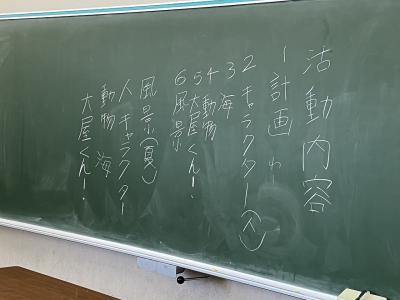 活動内容
1 計画
2 キャラクター(人)
3 海
4 動物
5 大屋くん!
6 風景
風景(夏)
人 キャラクター
動物 海
大屋くん!